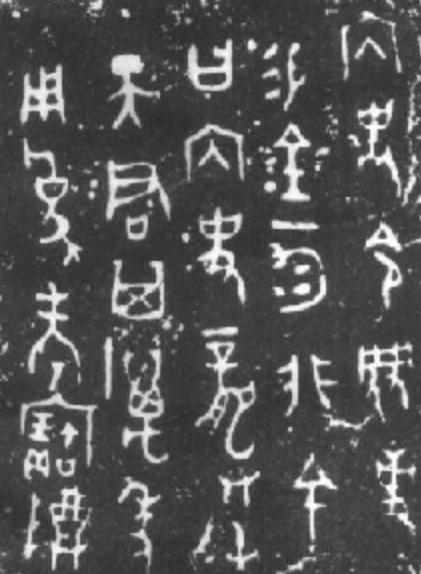 内史令事
易金一勻非余
曰内史龏朕
天君其萬年
用爲考寶尊